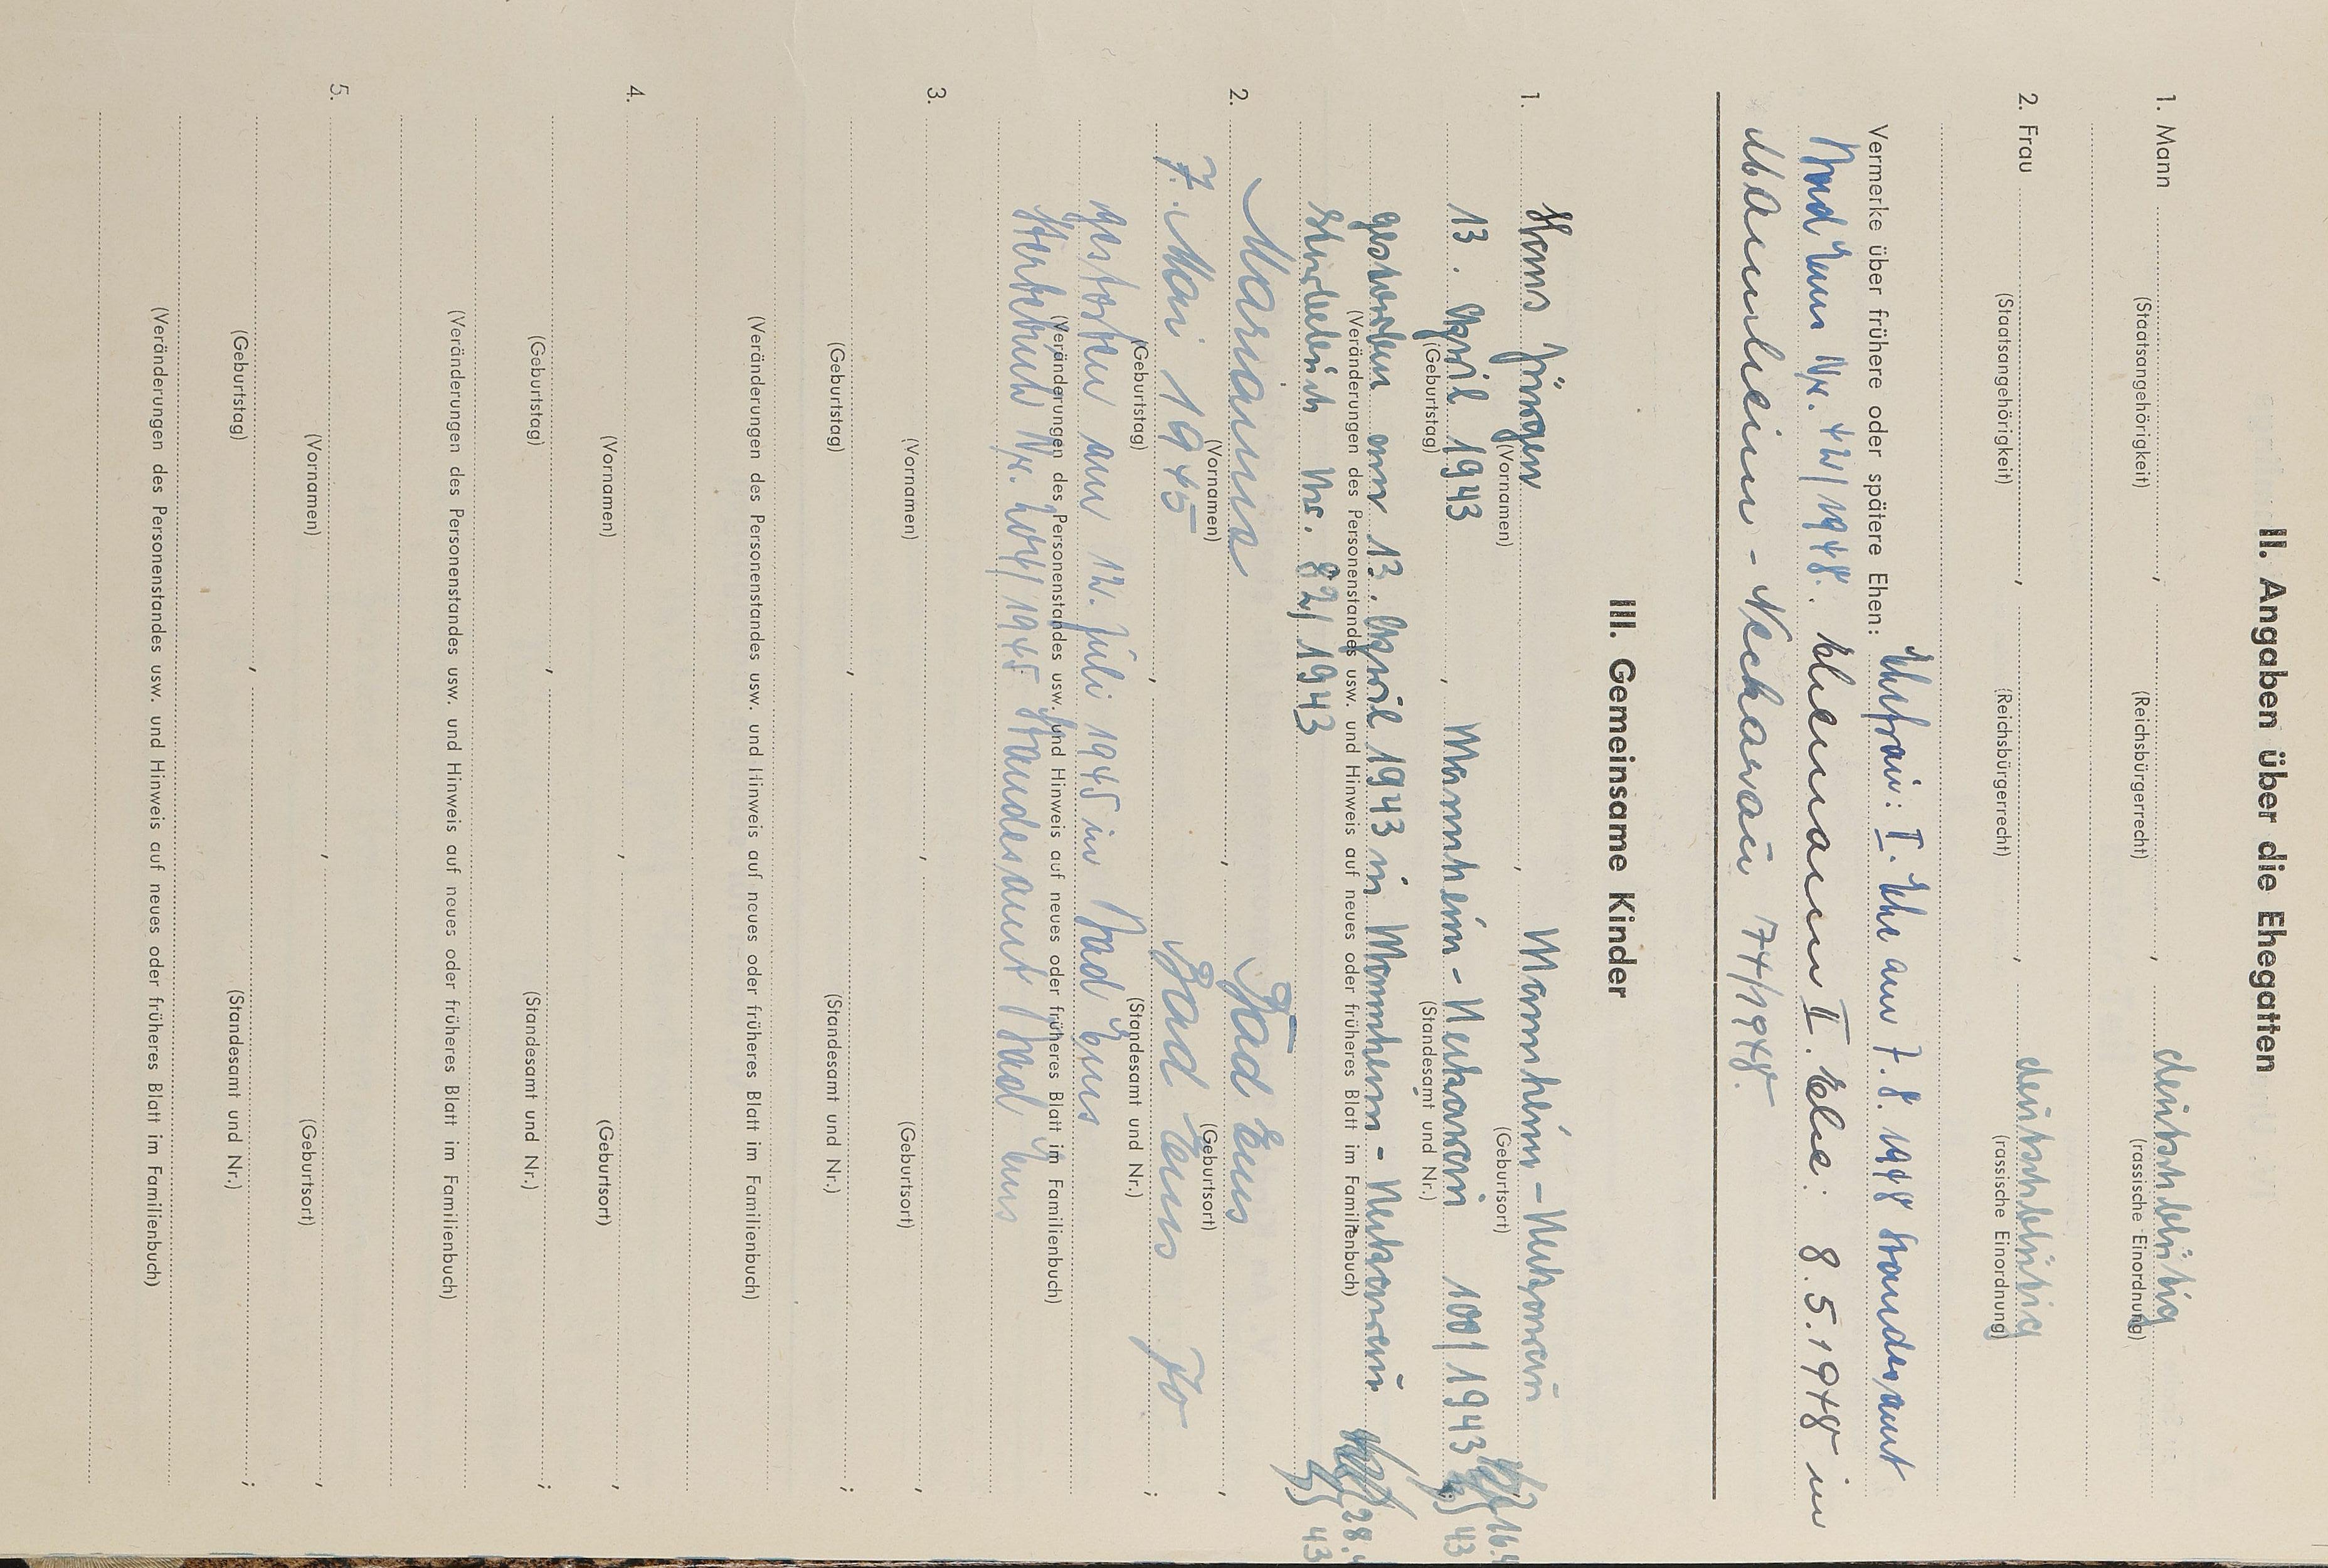 II. Angaben über die Ehegatten
1. Mann , , deutschblütig
(Staatsangehörigkeit) (Reichsbürgerrecht) (rassische Einordnung)
2. Frau , , deutschblütig
(Staatsangehörigkeit) (Reichsbürgerrecht) (rassische Einordnung)
Vermerke über frühere oder spätere Ehen: Ehefrau: I. Ehe am 7. 8. 1948 Standesamt
Bad Ems Nr. 42/1948. Ehemann II. Ehe: 8.5.1948 in
Mannheim-Neckarau 74/1948.
III. Gemeinsame Kinder
1. Hans Jürgen , Mannheim-Neckarau
(Vornamen) (Geburtsort)
13. April 1943 , Mannheim-Neckarau 100/1943
(Geburtstag) (Standesamt und Nr.)
gestorben am 13. April 1943 in Mannheim-Neckarau
(Veränderungen des Personenstandes usw. und Hinweis auf neues oder früheres Blatt im Familienbuch)
Sterbebuch Nr. 82/1943
2. Marianne , Bad Ems ,
(Vornamen) (Geburtsort)
7. Mai 1945 , Bad Ems 70 ;
(Geburtstag) (Standesamt und Nr.)
gestorben am 12. Juli 1945 in Bad Ems
(Veränderungen des Personenstandes usw. und Hinweis auf neues oder früheres Blatt im Familienbuch)
Sterbebuch Nr. 204/1945 Standesamt Bad Ems
3. , ,
(Vornamen) (Geburtsort)
, ;
(Geburtstag) (Standesamt und Nr.)
(Veränderungen des Personenstandes usw. und Hinweis auf neues oder früheres Blatt im Familienbuch)
4. , ,
(Vornamen) (Geburtsort)
, ;
(Geburtstag) (Standesamt und Nr.)
(Veränderungen des Personenstandes usw. und Hinweis auf neues oder früheres Blatt im Familienbuch)
5. , ,
(Vornamen) (Geburtsort)
, ;
(Geburtstag) (Standesamt und Nr.)
(Veränderungen des Personenstandes usw. und Hinweis auf neues oder früheres Blatt im Familienbuch)